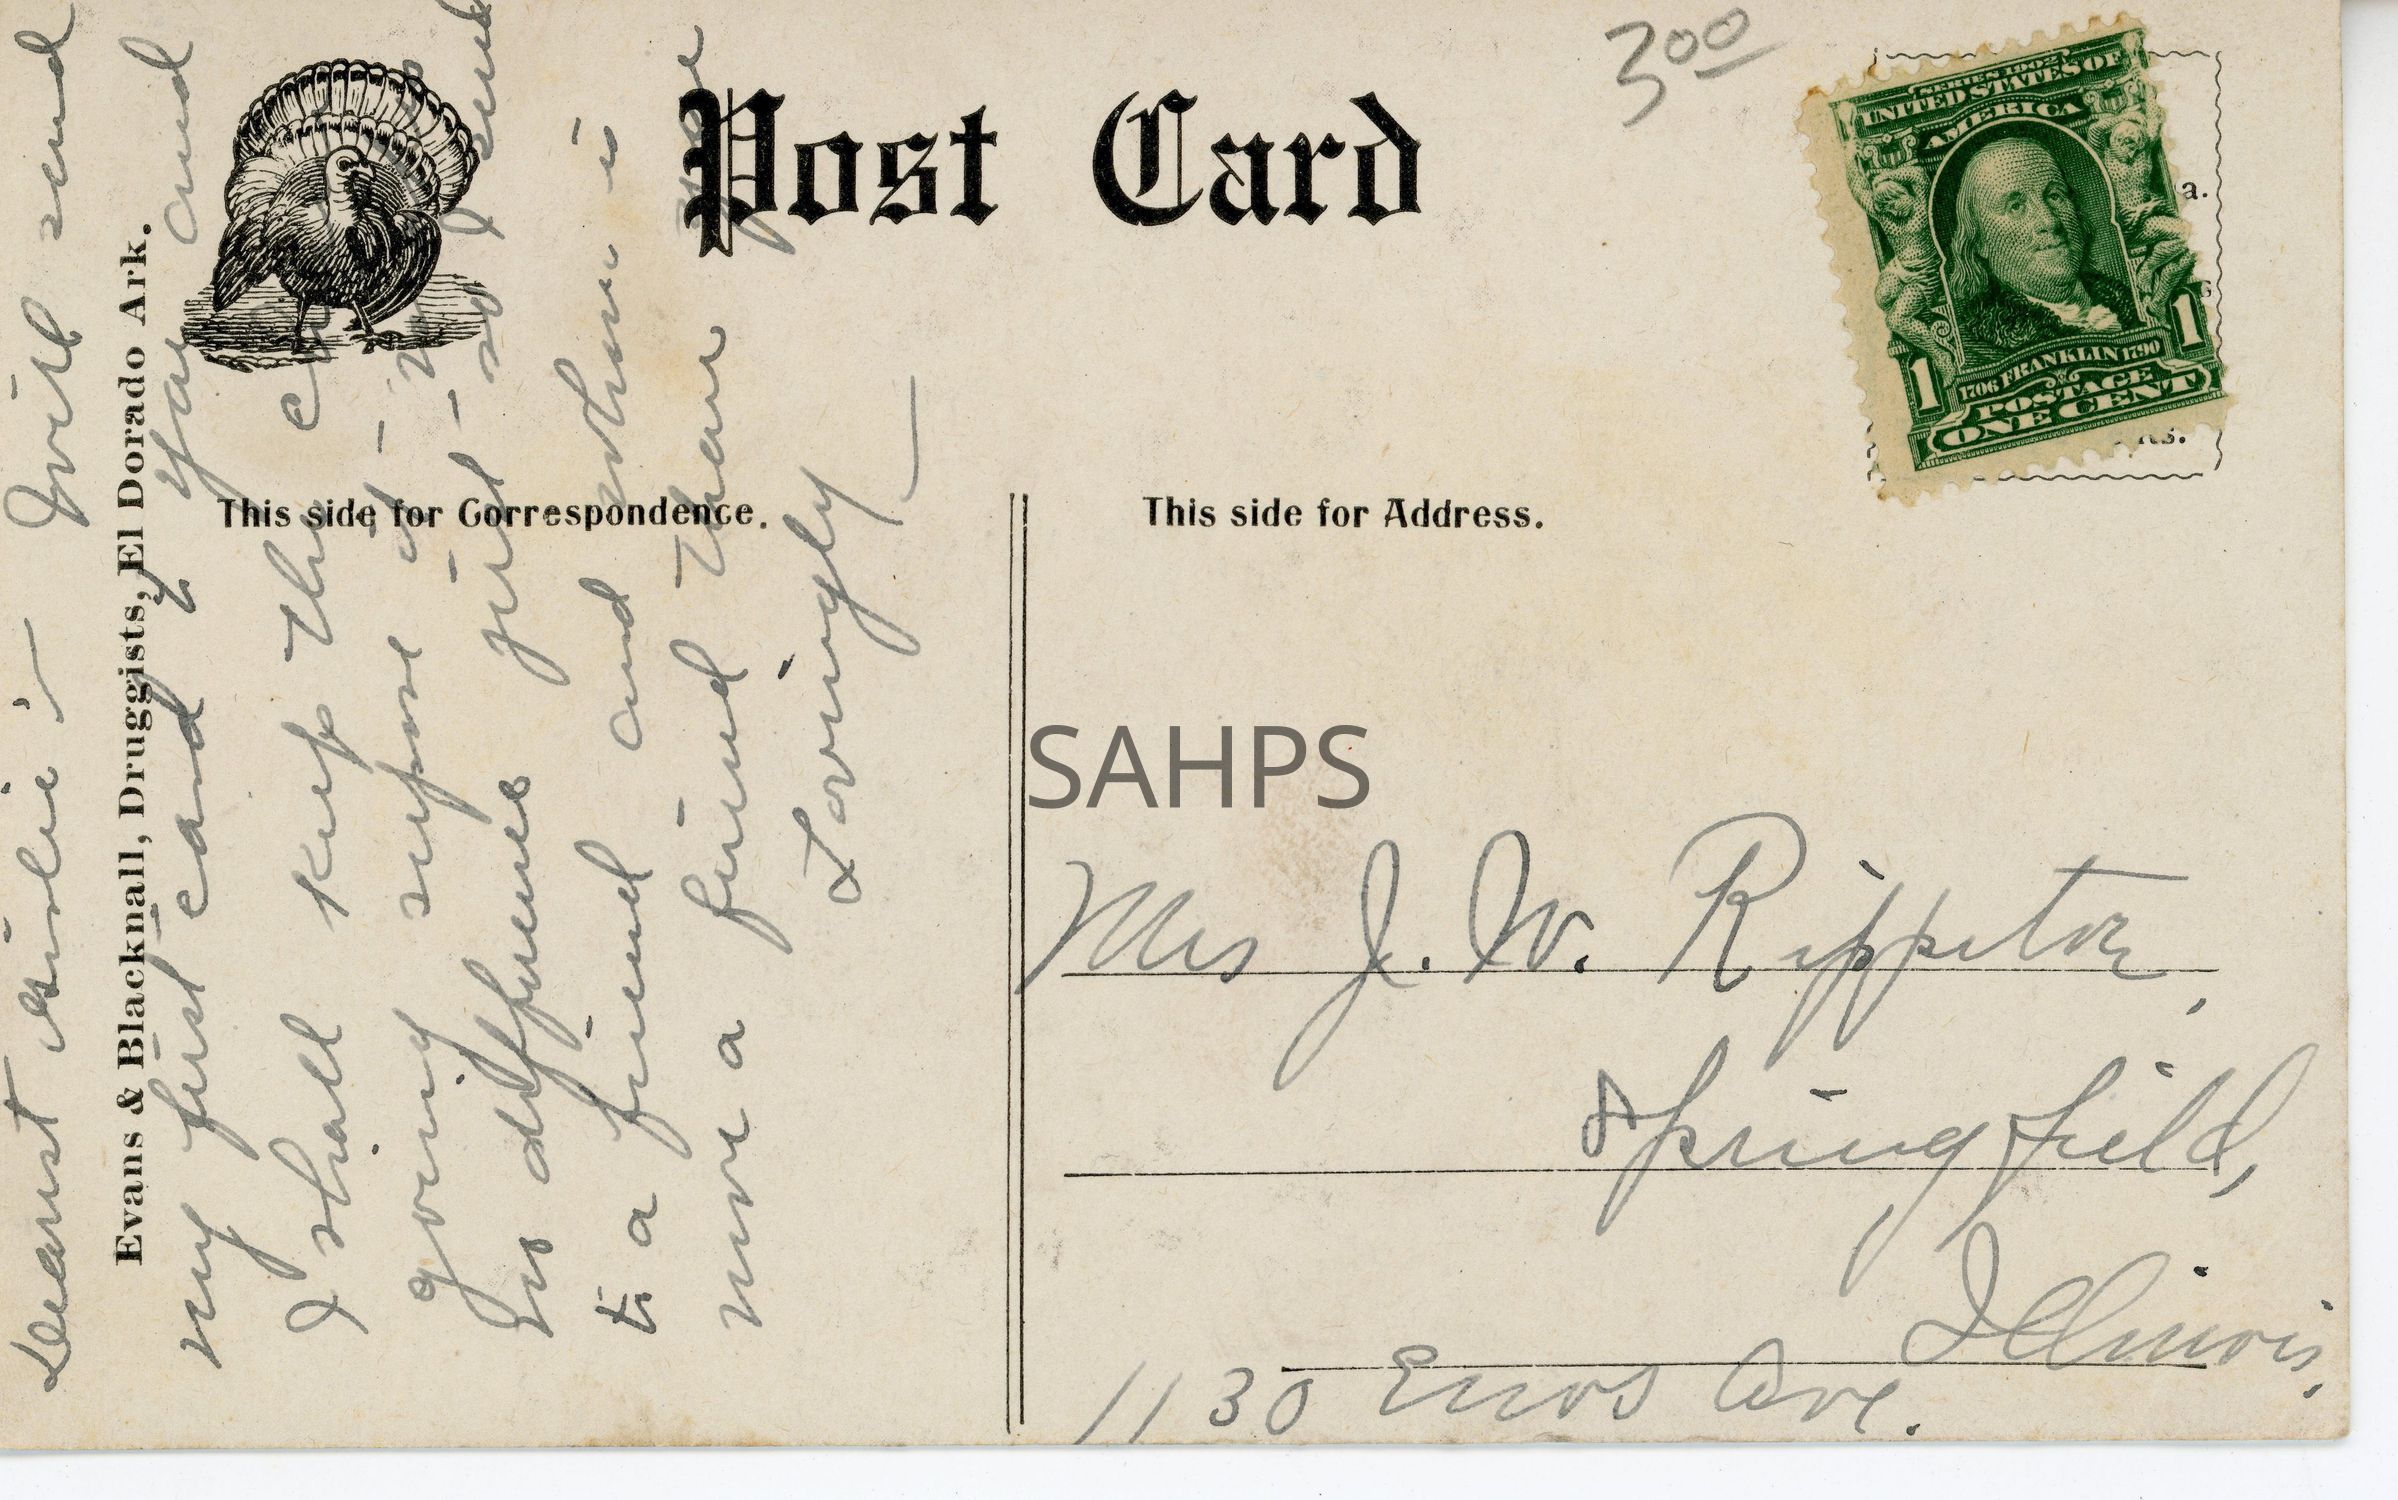 300
Post Card
SERIES 1902
UNITED STATES OF
AMERICA
1706 FRANKLIN 1790
POSTAGE
ONE CENT
1 1
a.
This side for Correspondence.
This side for Address.
Evans & Blacknall, Druggists, El Dorado Ark.
Dearest :- Will send
my first card to you and
I shall keep this
going
no difference just so I send
to a friend and whom is
more a friend than you
Lovingly
SAHPS
Mrs J. W. Rippetoe,
Springfield,
Illinois,
1130 Enos Ave.